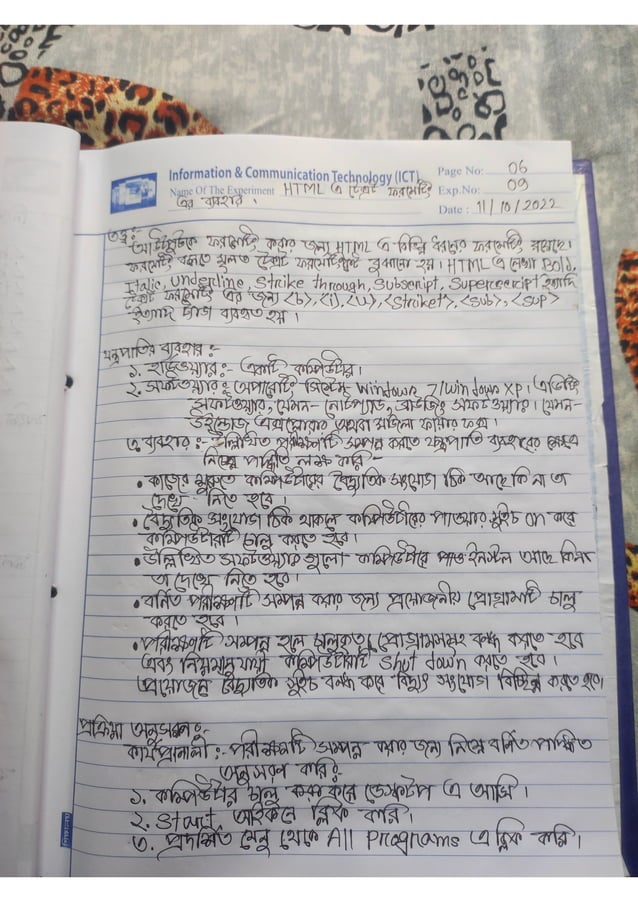 Information & Communication Technology (ICT) Page No: 06
Name Of The Experiment HTML এ টেক্সট ফরমেটিং Exp.No: 09
এর ব্যবহার। Date : 11/10/2022
তত্ত্ব:-
আউটপুটকে ফরমেটিং করার জন্য HTML এ বিভিন্ন ধরনের ফরমেটিং রয়েছে।
ফরমেটিং বলতে মূলত টেক্সট ফরমেটিংকেই বুঝানো হয়। HTML এ লেখা Bold,
Italic, Underline, Strike through, Subscript, Superscript ইত্যাদি
টেক্সট ফরমেটিং এর জন্য <b>, <i>, <u>, <striket>, <sub>, <sup>
ইত্যাদি ট্যাগ ব্যবহৃত হয়।
যন্ত্রপাতির ব্যবহার:-
১. হার্ডওয়্যার:- একটি কম্পিউটার।
২. সফটওয়্যার: অপারেটিং সিস্টেম Windown 7/Windown XP। এডিটিং
সফটওয়্যার, যেমন- নোটপ্যাড, ব্রাউজিং সফটওয়্যার। যেমন-
উইন্ডোজ এক্সপ্লোরার অথবা মজিলা ফায়ার ফক্স।
৩. ব্যবহার:- উল্লিখিত পরীক্ষণটি সম্পন্ন করতে যন্ত্রপাতি ব্যবহারের ক্ষেত্রে
নিম্নের পদ্ধতি লক্ষ করি:-
• কাজের শুরুতে কম্পিউটারের বৈদ্যুতিক সংযোগ ঠিক আছে কি না তা
দেখে নিতে হবে।
• বৈদ্যুতিক সংযোগ ঠিক থাকলে কম্পিউটারের পাওয়ার সুইচ on করে
কম্পিউটারটি চালু করতে হবে।
• উল্লিখিত সফটওয়্যার গুলো কম্পিউটারে ইনস্টল আছে কিনা
তা দেখে নিতে হবে।
• বর্নিত পরীক্ষণটি সম্পন্ন করার জন্য প্রয়োজনীয় প্রোগ্রামটি চালু
করতে হবে।
• পরীক্ষণটি সম্পন্ন হলে চালুকৃত প্রোগ্রামসমূহ বন্ধ করতে হবে
এবং নিয়মানুযায়ী কম্পিউটারটি shut down করতে হবে।
প্রয়োজনে বৈদ্যুতিক সুইচ বন্ধ করে বিদ্যুৎ সংযোগ বিচ্ছিন্ন করতে হবে।
প্রক্রিয়া অনুসরণ:-
কার্যপ্রণালী:- পরীক্ষণটি সম্পন্ন করার জন্য নিম্নে বর্নিত পদ্ধতি
অনুসরণ করি:
১. কম্পিউটার চালু করে ডেস্কটপ এ আসি।
২. Start আইকনে ক্লিক করি।
৩. প্রদর্শিত মেনু থেকে All Programs এ ক্লিক করি।